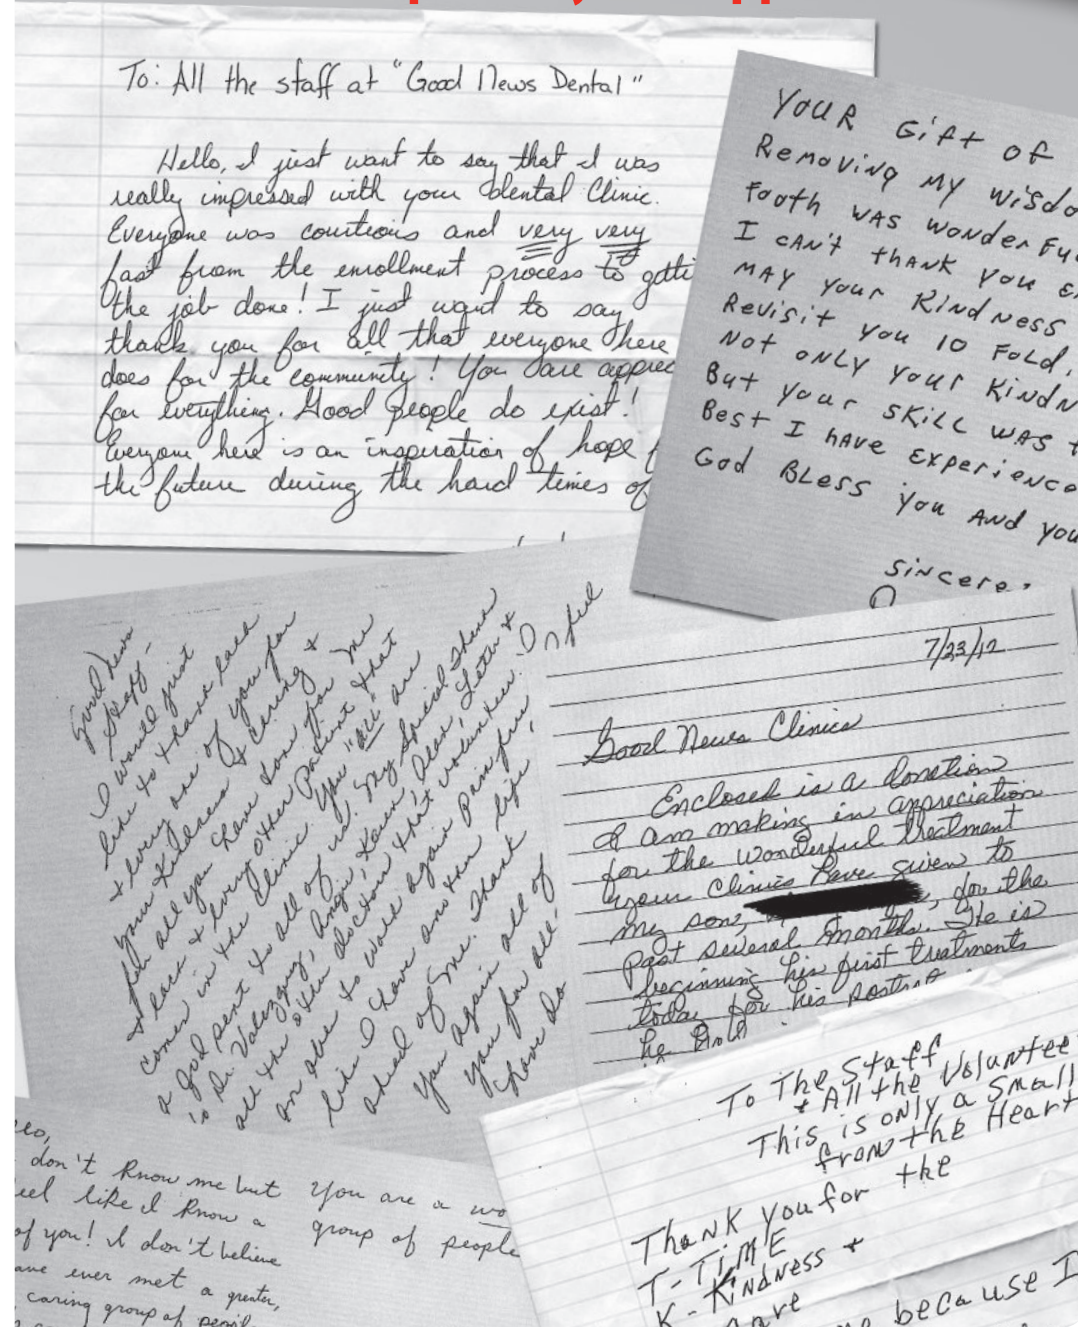 To: All the staff at "Good News Dental"
Hello, I just want to say that I was
really impressed with your Dental Clinic.
Everyone was courtious and very very
fast from the enrollment process to getti
the job done! I just want to say
thank you for all that everyone here
does for the community! You are apprec
for everything. Good people do exist!
Everyone here is an inspiration of hope f
the future during the hard times of
YOUR Gift of
Removing MY Wisdo
Tooth WAS WonderFu
I cAN't thANK you E
MAY your Kindness
Revisit you 10 Fold.
Not ONLY your KindN
But your SKiLL WAS t
Best I hAve Experience
God BLess you ANd you
Sincere
Good News
Staff-
I would just
like to thank each
+ every one of you for
your Kindness & Caring &
for all you have done for me
+ each & every other patient that
comes in the Clinic. You "all" are
a God sent to all of us. My Special Thanks
is Dr. Valazquez, Angie, Karen, Dear, Letter &
all the other doctors that volunteer. I feel
on able to walk again Pain free
like I have another life
ahead of me. Thank
You again all of
you for all-
have do
7/23/12
Good News Clinics
Enclosed is a donation
I am making in appreciation
for the wonderful treatment
your Clinics have given to
my son, , for the
past several months. He is
beginning his first treatments
today for his
he
To The Staff
+ All the Voluntee
This is only a Small
from the Heart
Thank you for the
T-TiME
K-Kindness +
because I
don't know me but
eel like I know a
of you! I don't believe
ave ever met a greater,
caring group of people
You are a wo
group of people